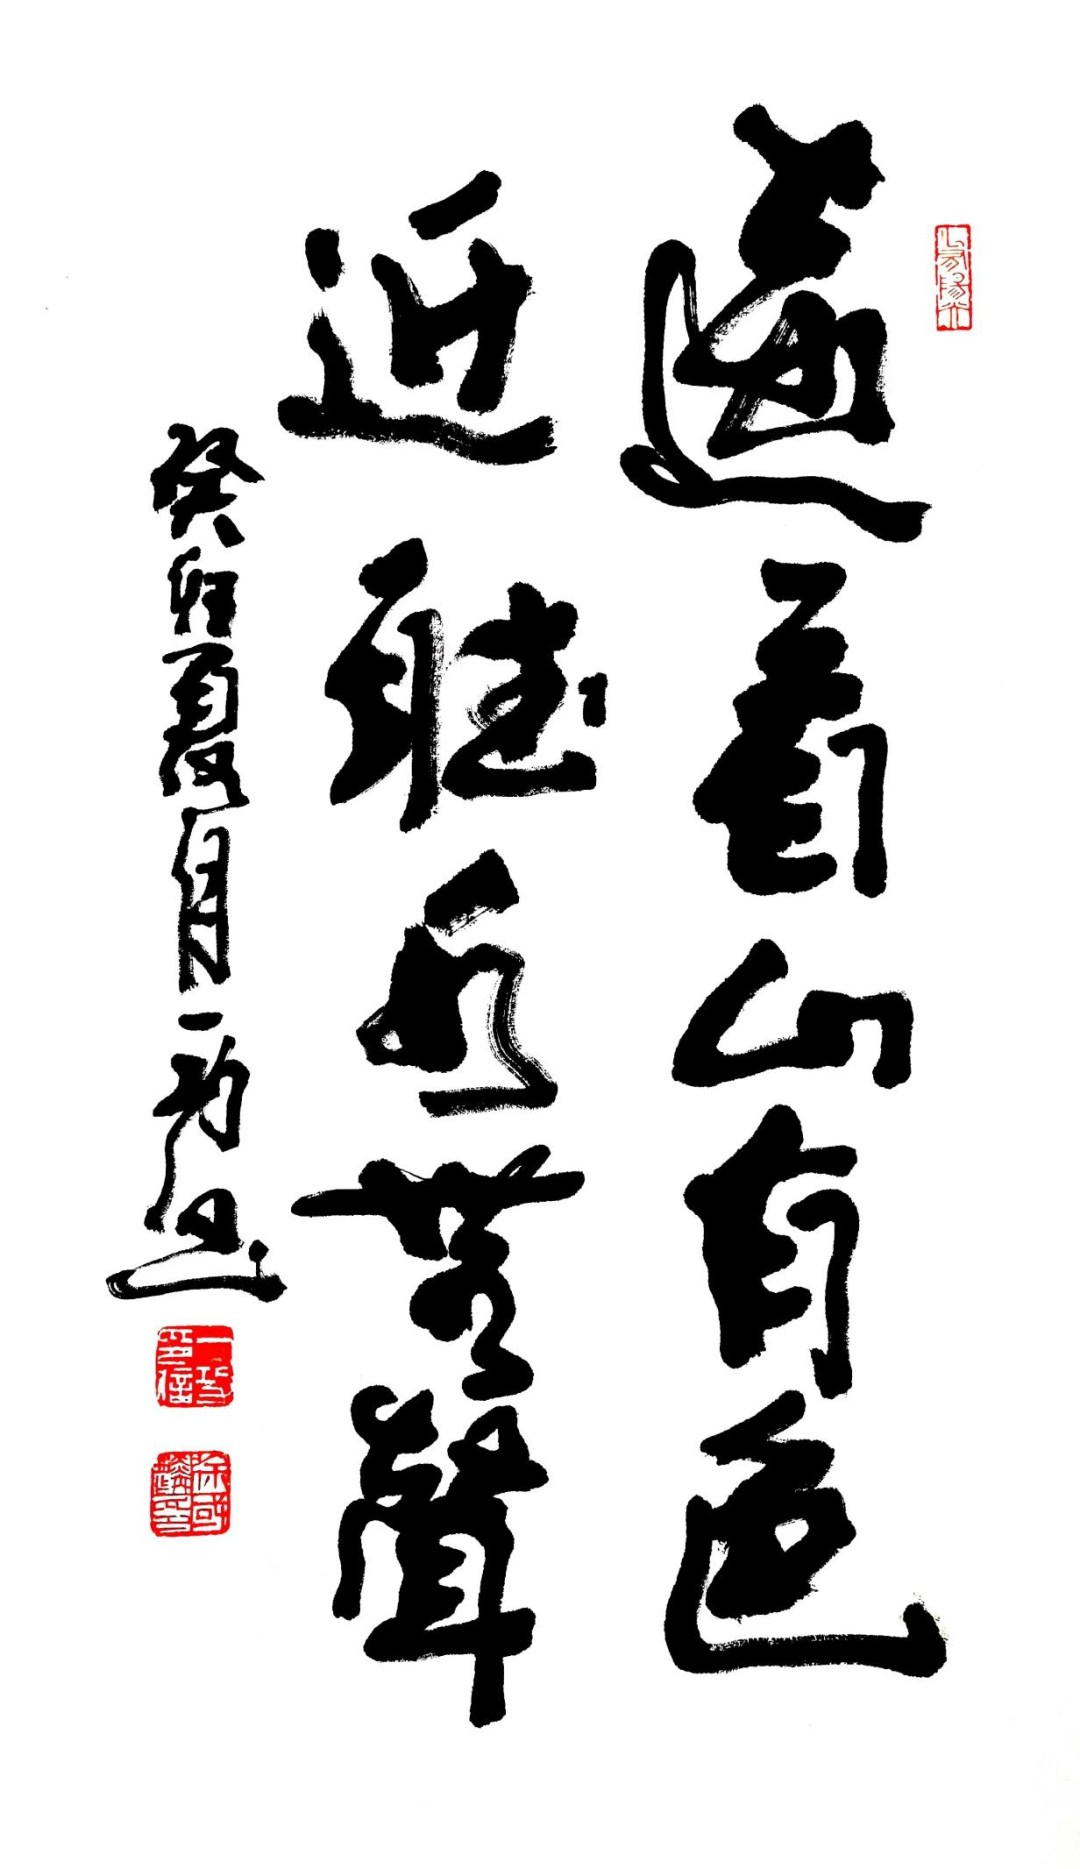 心有陽光
遠看山有色
近聽水無聲
癸卯夏月一書